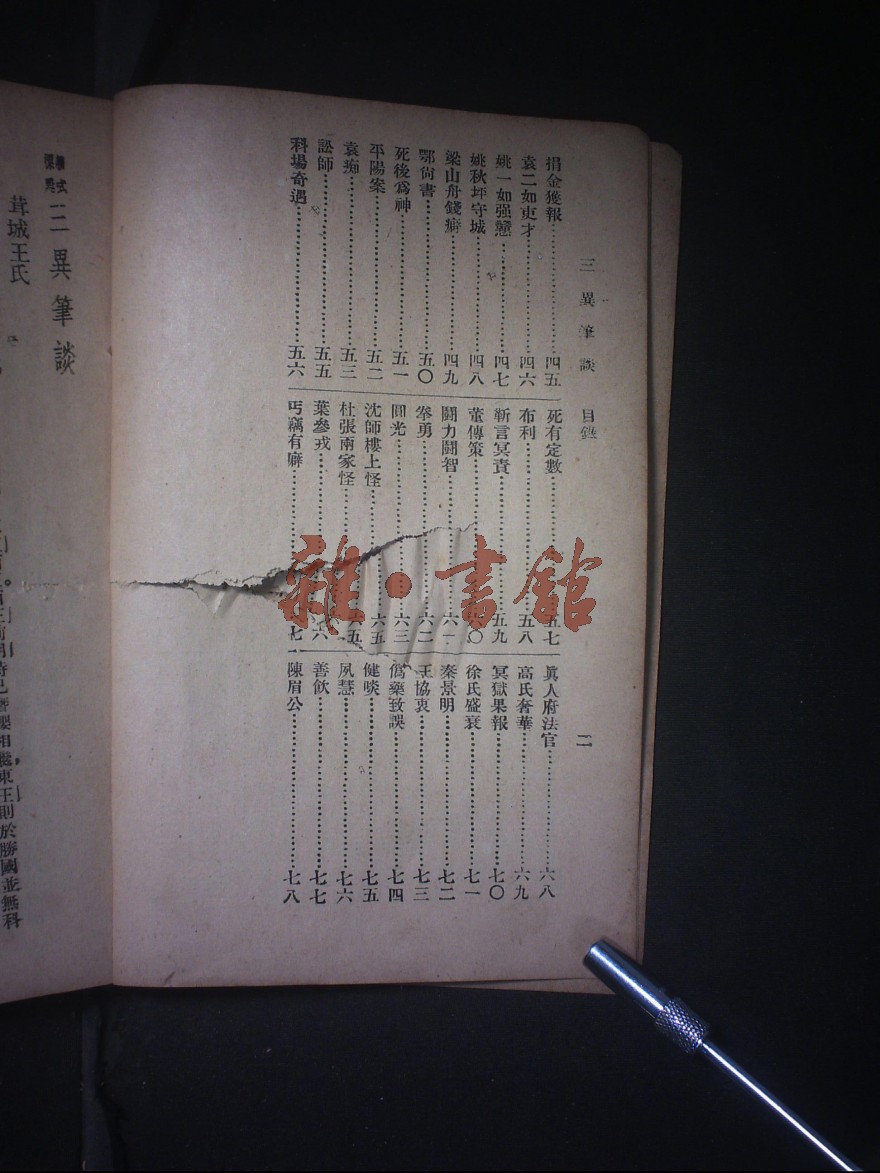 三異筆談 目錄 二
捐金獲報 四五
袁二如吏才 四六
姚一如强戇 四七
姚秋坪守城 四八
梁山舟錢癖 四九
鄂尚書 五〇
死後爲神 五一
平陽案 五二
袁痴 五三
訟師 五五
科場奇遇 五六
死有定數 五七
布利 五八
靳言冥責 五九
董傳策 六〇
鬪力鬪智 六一
拳勇 六二
圓光 六三
沈師樓上怪 六五
杜張兩家怪 六五
葉參戎 六
丐竊有癖 七
眞人府法官 六八
高氏奢華 六九
冥獄果報 七〇
徐氏盛衰 七一
秦景明 七二
王協衷 七三
僞藥致誤 七四
健啖 七五
夙慧 七六
善飲 七七
陳眉公 七八
三異筆談
茸城王氏
相繼東王則於勝國並無科
雜·書館